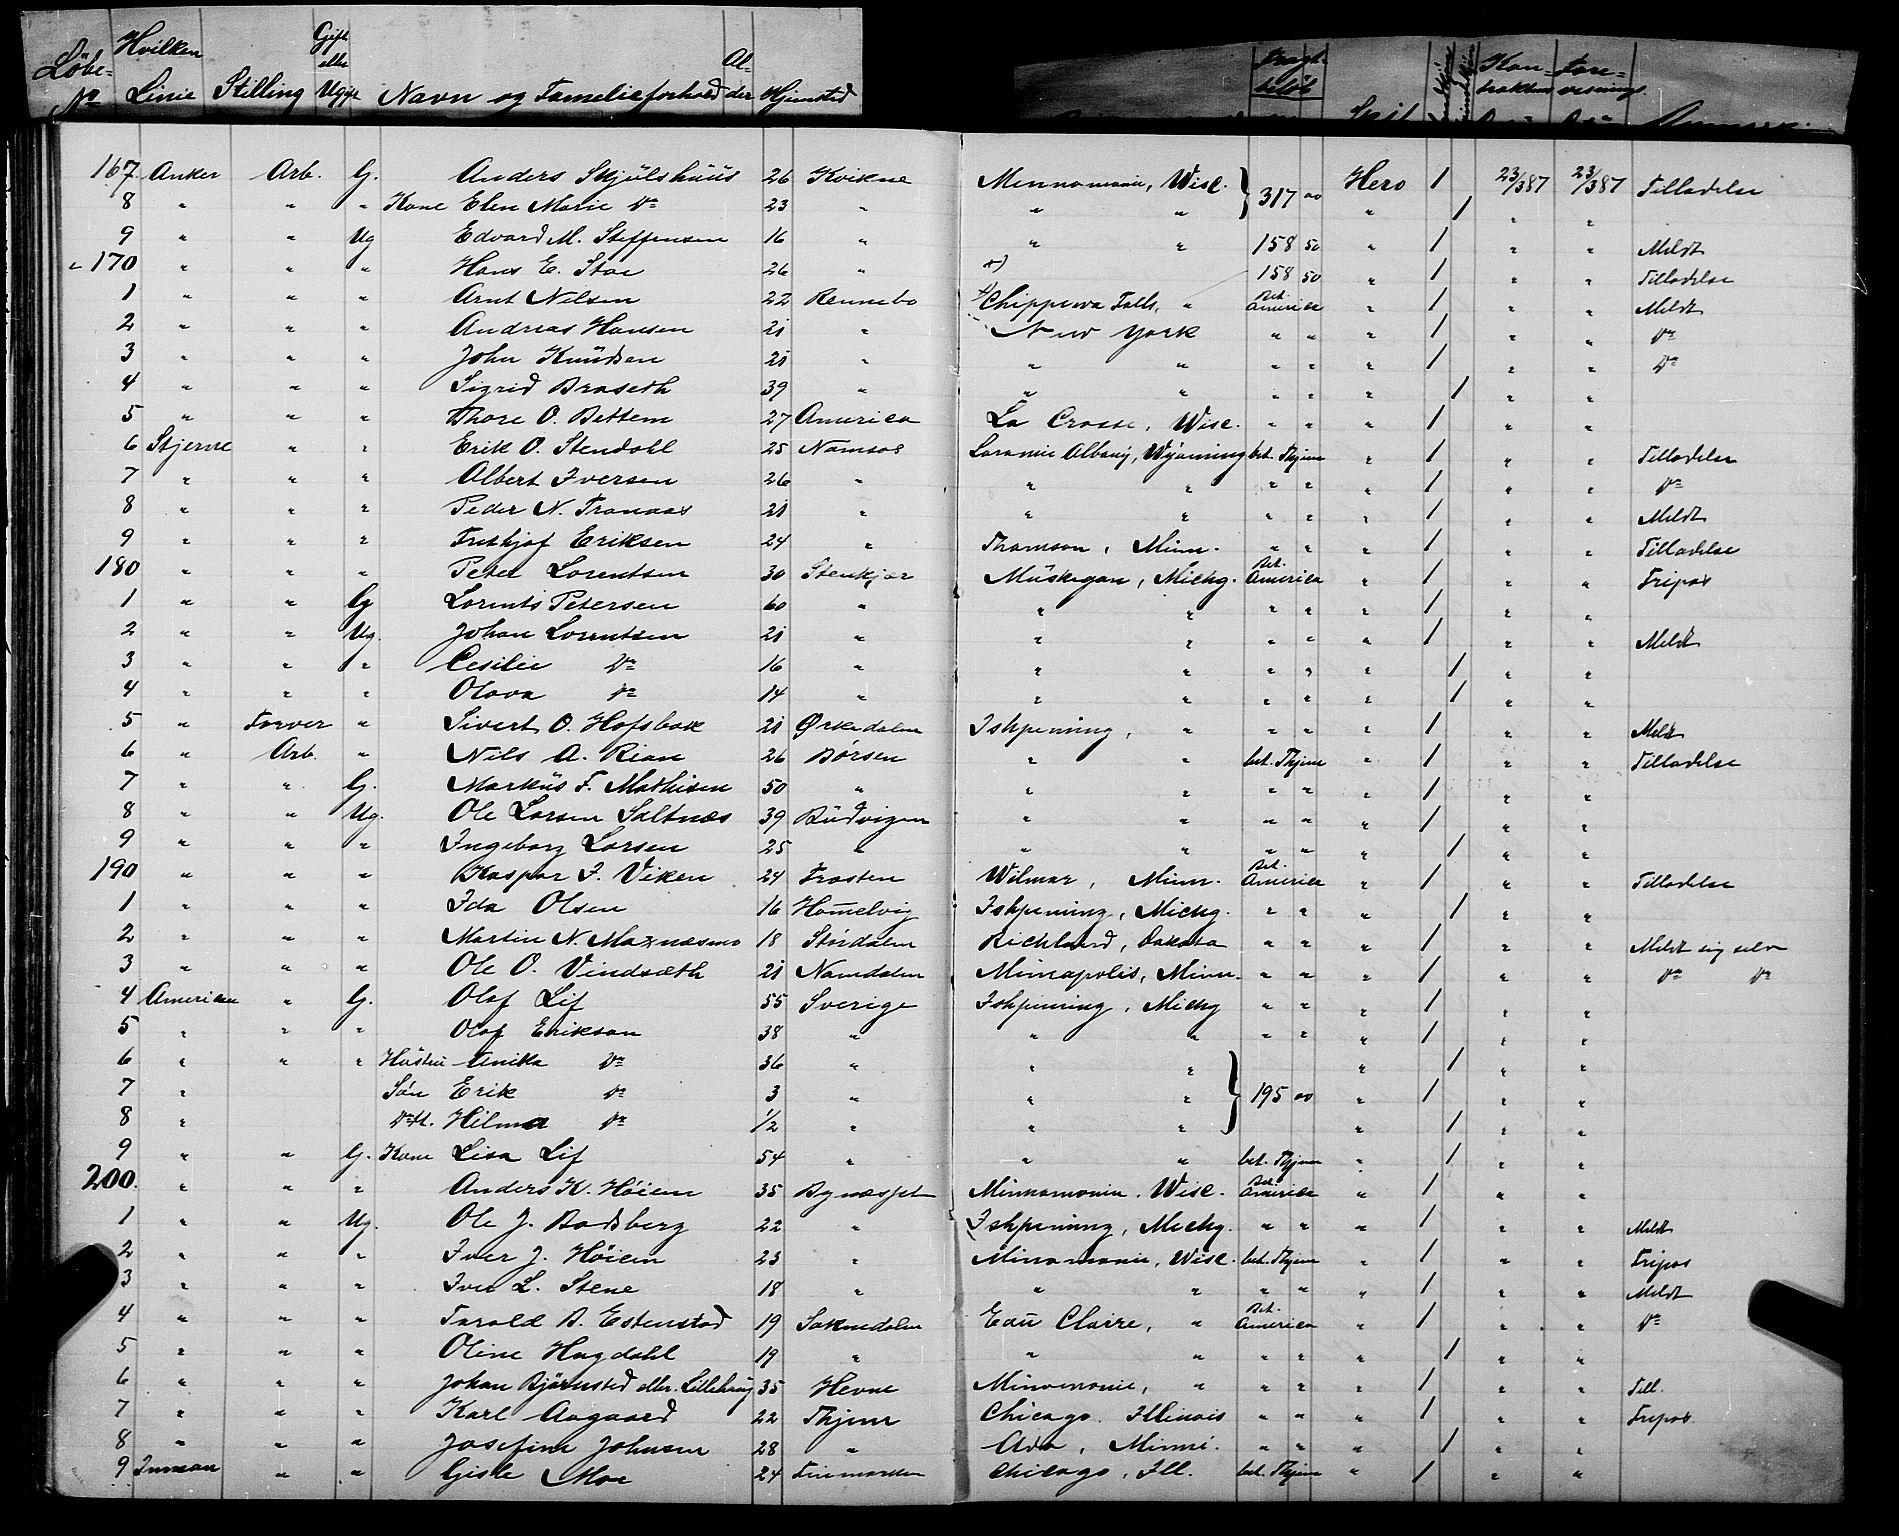 Löbe- No Hvilken Linie Stilling Gift eller Ugift Navn og Familieforhold Alder Hjemsted Fragtbeløb Skib Kontraktens Forevisnings
167 Anker Arb. G. Anders Skjülshüüs 26 Kvikne Mennomonie, Wisc. } 317 00 Hero 1 23/3 87 23/3 87 Tilladelse
8 " " " Kone Elen Marie Do 23 " " " " 1 " "
9 " " Ug Edvard M. Steffensen 16 " " " 158 50 " 1 " " Meldt
170 " " " Hans E. Stai 26 " 158 50 " 1 " " Tilladelse
1 " " " Arnt Nilsen 22 Rennebo Chippewa Falls, " Bet. America " 1 " " Meldt
2 " " " Andreas Hansen 21 " New York " " " 1 " " Do
3 " " " John Knüdsen 21 " " " " " " 1 " " Do
4 " " " Sigrid Braseth 39 " " " " " " 1 " "
5 " " " Thore O. Bettem 27 America La Crosse, Wisc. " " " 1 " "
6 Stjerne " " Erik O. Stendahl 25 Namsos Laramie Albany, Wyoming bet. Thjem " 1 " " Tilladelse
7 " " " Albert Iversen 26 " " " " " " 1 " " Do
8 " " " Peder N. Tranaas 21 " " " " " " 1 " " Meldt
9 " " " Frithjof Eriksen 24 " Thomson, Minn. " " " 1 " " Tilladelse
180 " " " Peter Lorentsen 30 Stenkjær Müskegon, Michg. Bet. America " 1 " " Fripas
1 " " G Lorents Petersen 60 " " " " " " 1 " "
2 " " Ug. Johan Lorentsen 21 " " " " " " 1 " " Meldt
3 " " " Cesilie Do 16 " " " " " " 1 " "
4 " " " Olava Do 14 " " " " " " 1 " "
5 " Farver " Sivert O. Hofsbak 21 Ørkedalen Ishpeming, " " " " 1 " " Meldt
6 " Arb. " Nils A. Rian 26 Børsen " " bet. Thjem " 1 " " Tilladelse
7 " " G. Marküs F. Mathisen 50 " " " " " " 1 " "
8 " " Ug. Ole Larsen Saltnæs 39 Büdvigen " " " " " 1 " "
9 " " " Ingeborg Larsen 25 " " " " " " 1 " "
190 " " " Kaspar J. Viken 24 Frosten Wilmar, Minn. Bet. America " 1 " " Tilladelse
1 " " " Ida Olsen 16 Homelvig Ishpeming, Michg. " " " 1 " "
2 " " " Martin N. 18 Stördalen Richland, Dakota " " " 1 " " Meldt sig selv
3 " " " Ole O. Vindsæth 21 Namdalen Mineapolis, Minn. " " " 1 " " Do Do
4 American " G. Olof Lif 55 Sverige Ishpeming, Michg " " " 1 " "
5 " " " Olof Erikson 38 " " " " " " 1 " "
6 " " " Hüstru Anika Do 36 " " " } " 1 " "
7 " Sön Erik Do 3 " " " 195 00 " 1 " "
8 " Datt. Hilma Do 1/2 " " " " 1 " "
9 " " G. Kone Lisa Lif 54 " " " bet. Thjem " 1 " "
200. " " " Anders K. Høiem 35 Bynæsset Minnomonie, Wisc. Bet. America " 1 " "
1 " " Ug. Ole J. Bodsberg 22 " Ishpeming, Michg. " " " 1 " " Meldt
2 " " " Iver J. Höiem 23 " Minnomonie, Wisc. bet. Thjem " 1 " " Fripas
3 " " " Iver L. Stene 18 " " " " " " 1 " " Meldt
4 " " " Tarald B. Estenstad 19 Soknedalen Eau Claire, " Bet. America " 1 " " Do
5 " " " Oline Hagdahl 19 " " " " " " 1 " "
6 " " " Johan Björnsted eller Lillehaug 35 Hevne Minnomonie, " " " " 1 " " Till.
7 " " " Karl Aagaard 22 Thjem Chicago Illinois " " " 1 " " Fripas
8 " " " Josefine Johnsen 28 " Ada, Minne. " " " 1 " "
9 Inman " " Gisle Moe 24 Finmarken Chicago, Ill. bet. Thjem " 1 " "